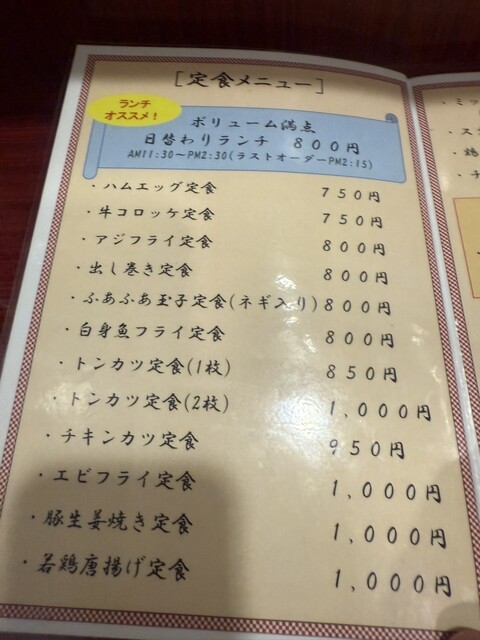 [定食メニュー]
ランチ
オススメ!
ボリューム満点
日替わりランチ 800円
AM11:30~PM2:30(ラストオーダーPM2:15)
・ハムエッグ定食 750円
・牛コロッケ定食 750円
・アジフライ定食 800円
・出し巻き定食 800円
・ふあふあ玉子定食(ネギ入り) 800円
・白身魚フライ定食 800円
・トンカツ定食(1枚) 850円
・トンカツ定食(2枚) 1,000円
・チキンカツ定食 950円
・エビフライ定食 1,000円
・豚生姜焼き定食 1,000円
・若鶏唐揚げ定食 1,000円
・ミッ
・ス
・鶏
・チ